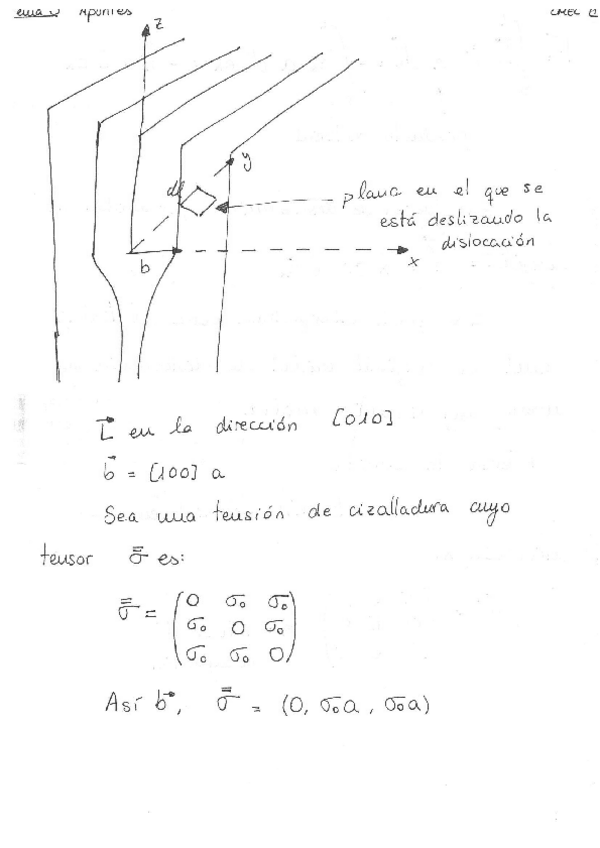 Apuntes
z
y
dl
plano en el que se
está deslizando la
dislocación
x
b
L⃗ en la dirección [010]
b⃗ = [100] a
Sea una tensión de cizalladura cuyo
tensor σ̿ es:
σ̿ = (0 σ₀ σ₀
σ₀ 0 σ₀
σ₀ σ₀ 0)
Así b⃗, σ̿ = (0, σ₀a, σ₀a)